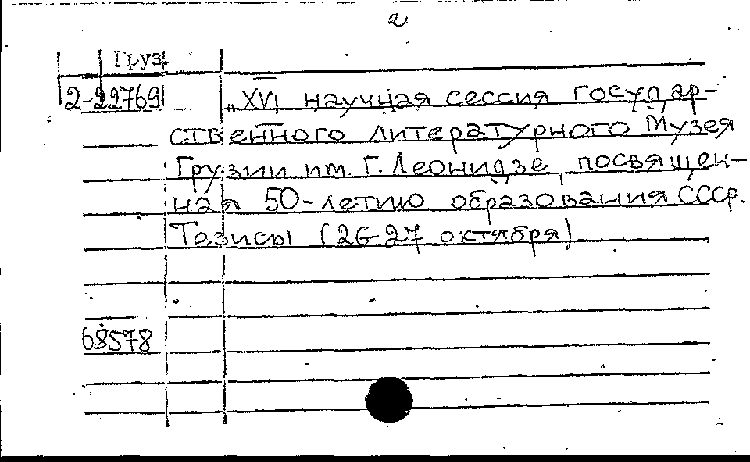 2
Груз
2-22769 „XVI научная сессия государ-
ственного литературного Музея
Грузии им. Г. Леонидзе, посвящен-
ная 50-летию образования СССР.
Тезисы (26-27 октября)
68578